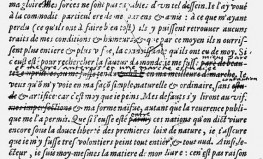 ma gloire. Mes forces ne sont pas capables d'un tel dessein. Ie l'ay voué
à la commodité particuliere de mes parens & amis: à ce que m'ayant
perdu (ce qu'ils ont à faire bien tost) ils y puissent retrouuer aucuns
traits de mes conditions & humeurs, & que par ce moyen ils nourris-
sent plus entiere & plus vifue, la connoissance qu'ils ont eu de moy. Si
c'eust esté pour rechercher la faueur du monde, ie me fusse
en
veux qu'on m'y voie en ma façon simple, naturelle & ordinaire, sans
& artifice: car c'est moy que ie peins. Mes defauts s'y liront au vif,
mes imperfections & ma forme naïfue, autant que la reuerence publi-
que me l'a permis. Que si i'eusse esté ces nations qu'on dit viure
encore sous la douce liberté des premieres loix de nature, ie t'asseure
que ie m'y fusse tres-volontiers peint tout entier, & tout nud. Ainsi, le-
cteur, ie suis moy-mesmes la matiere de mon liure: c'est pas raison